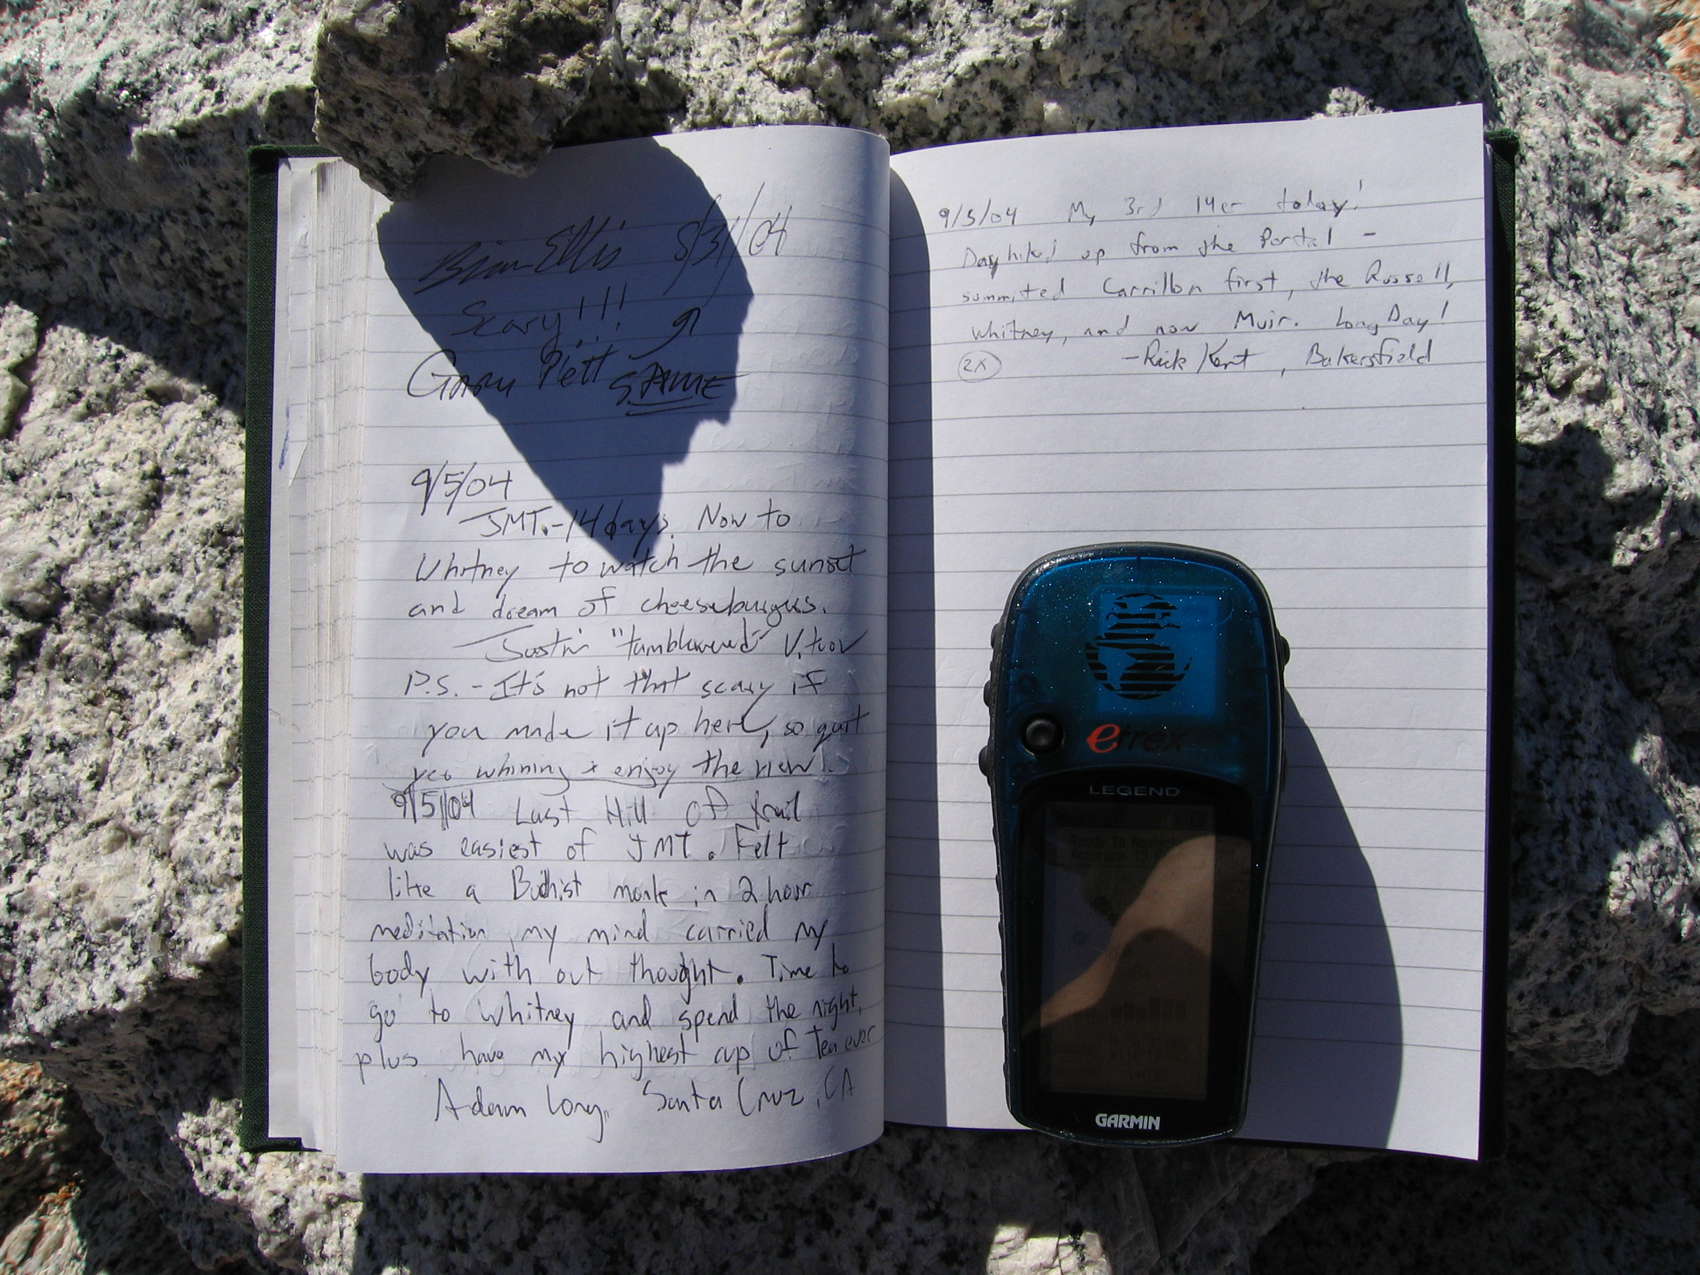 Brian Ellis 8/31/04
Scary!!!
Gary Pett SAME
9/5/04
JMT.-14 days. Now to
Whitney to watch the sunset
and dream of cheeseburgers.
Justin "tumbleweed"
P.S. - It's not that scary if
you made it up here, so quit
yer whining + enjoy the view.
9/5/04 Last Hill of trail
was easiest of JMT. Felt
like a Budhist monk in 2 hour
meditation my mind carried my
body with out thought. Time to
go to Whitney and spend the night,
plus have my highest cup of Tea ever
Adam Long, Santa Cruz, CA
9/5/04 My 3rd 14er today!
Dayhiked up from the Portal -
summited Carrillon first, the Russell,
Whitney, and now Muir. Long Day!
2x -Rick Kent, Bakersfield
etrex
LEGEND
GARMIN